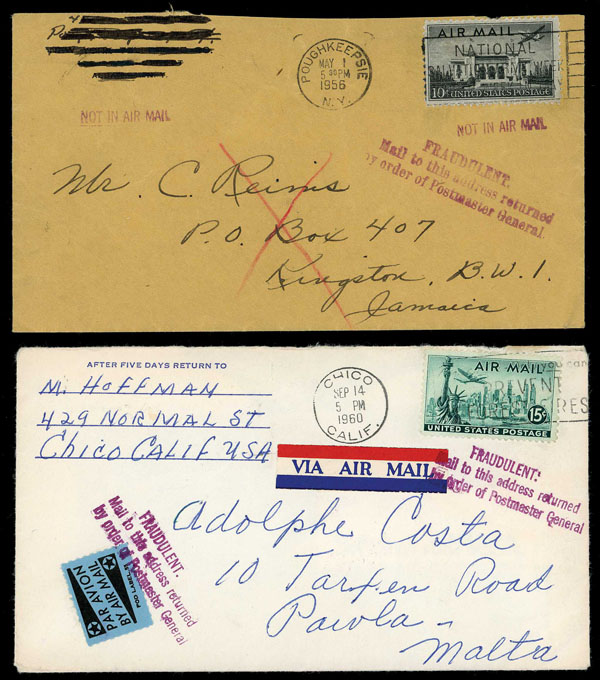 POUGHKEEPSIE
MAY 1
5 30 PM
1956
N.Y.
AIR MAIL
NATIONAL
10¢ UNITED STATES POSTAGE
NOT IN AIR MAIL
NOT IN AIR MAIL
FRAUDULENT:
Mail to this address returned
by order of Postmaster General
Mr. C. Reinis
P.O. Box 407
Kingston, B.W.I.
Jamaica
AFTER FIVE DAYS RETURN TO
M. HOFFMAN
429 NORMAL ST
CHICO CALIF USA
CHICO
SEP 14
5 PM
1960
CALIF.
you can
AIR MAIL
PREVENT
15¢
UNITED STATES POSTAGE
VIA AIR MAIL
FRAUDULENT:
Mail to this address returned
by order of Postmaster General
FRAUDULENT:
Mail to this address returned
by order of Postmaster General
PAR AVION
BY AIR MAIL
Adolphe Costa
10 Tarxen Road
Pawla-
Malta